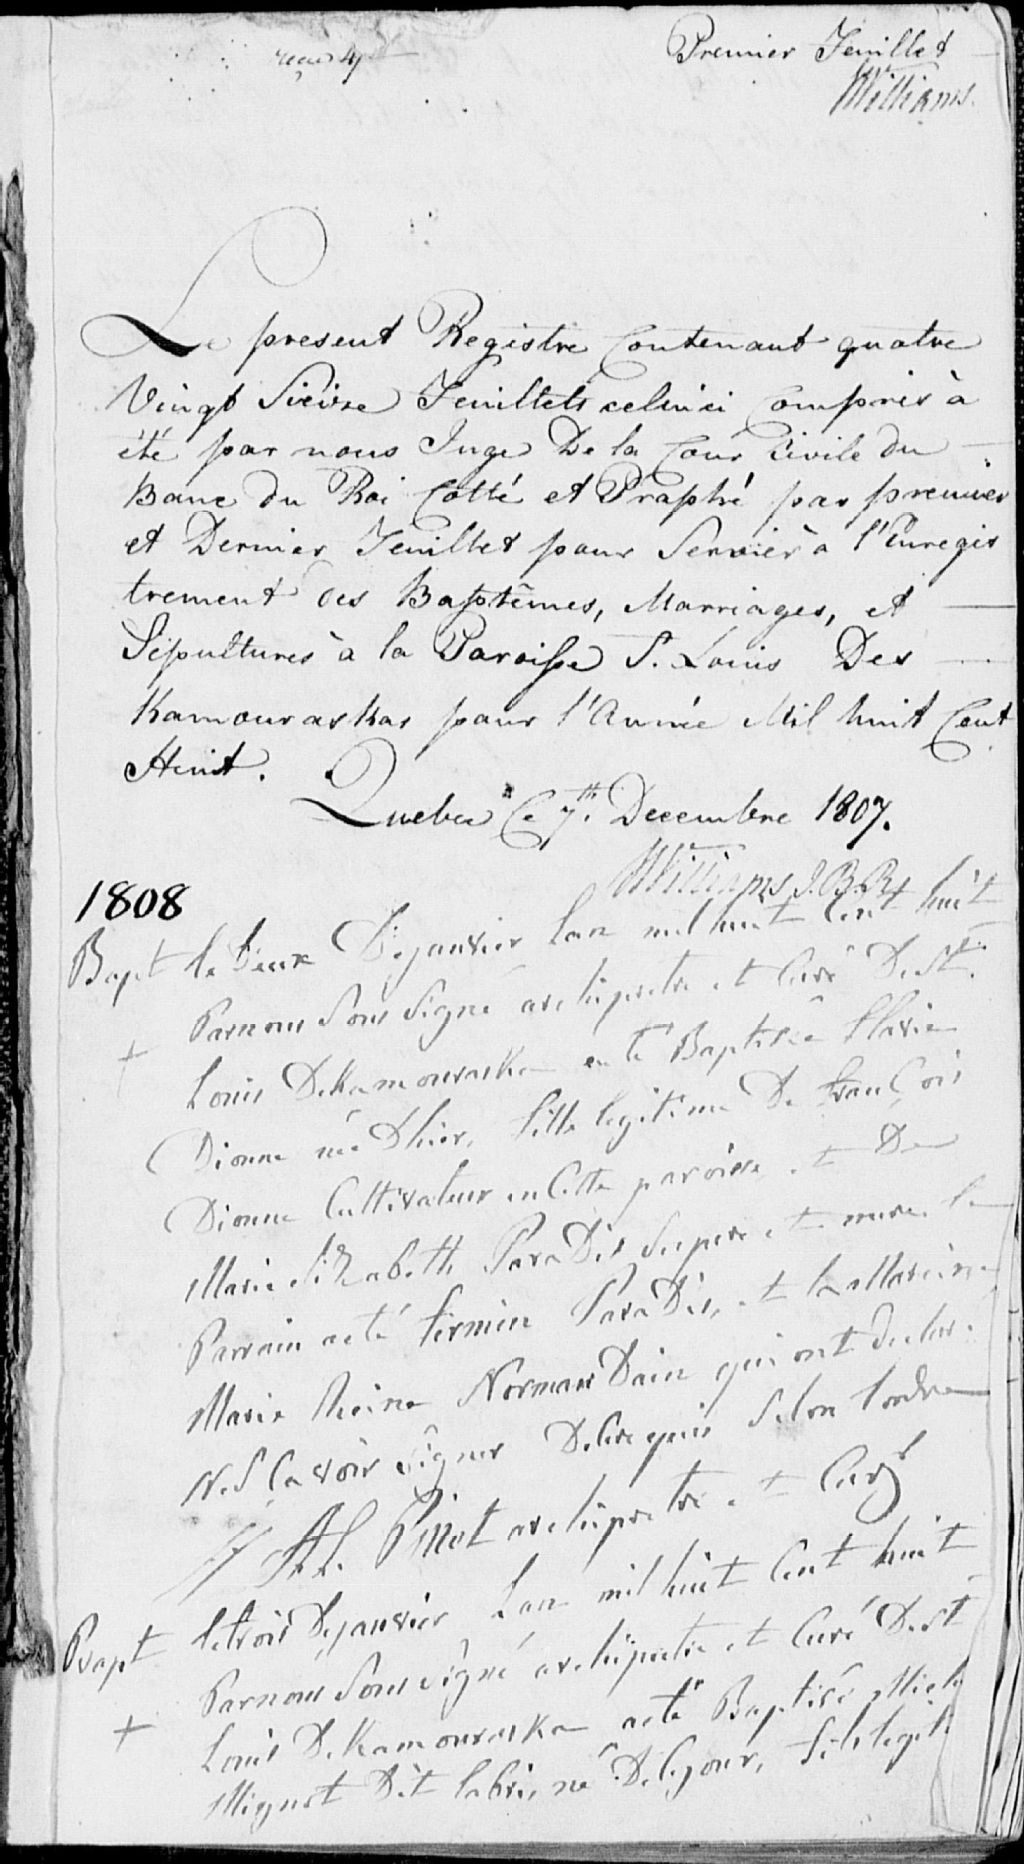 Premier Feuillet
Williams
Le present Registre Contenant quatre
Vingt Sieize Feuillets celuici Compris à
été par nous Juge De la Cour Civile du
Banc du Roi Cotté et Praphé par premier
et Dernier Feuillet pour Servier à l'Enregis
trement des Baptêmes, Marriages, et
Sépultures à la Paroisse S. Louis Des
Kamouraskas pour l'Année Mil huit Cent
Huit.
Quebec Ce 7th. Decembre 1807.
Williams J.B.R.
1808
Bapt le Deux De janvier lan mil huit Cent huit
Parnous Sous Signé archipretre et Curé De St.
+ Louis De Kamouraska eté Baptisée Flavie
Dionne née D'hier, fille legitime De François
Dionne Cultivateur en Cette paroisse et De
Marie Elizabeth ParaDis Ses pere et mere. le
Parrain aeté firmin ParaDis, et la Mareine
Marie Reine NormanDain qui ont declaré
Ne Scavoir Signer Delire quis Selon lordre
// Al. Pinet archipretre et Curé
Bapt le trois De janvier Lan mil huit Cent huit
Parnous Sous signé archipretre et Curé De St
+ Louis De Kamouraska aeté Baptisé Mich
Mignot Dit labrie, né De Ce jour, fils legit